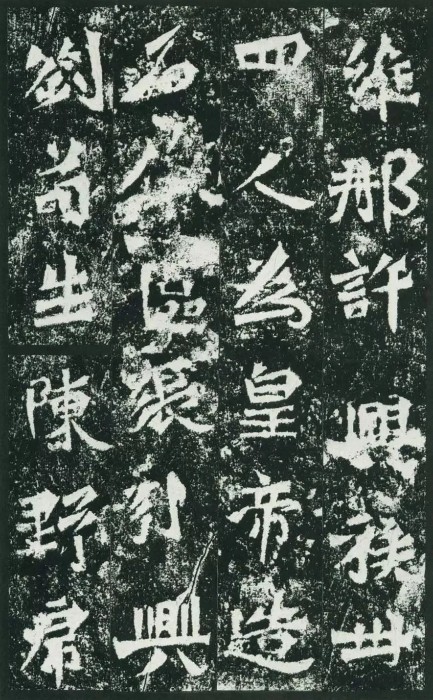 維那許興族卅
四人為皇帝造
石像區裴引興
劉苟生陳野君